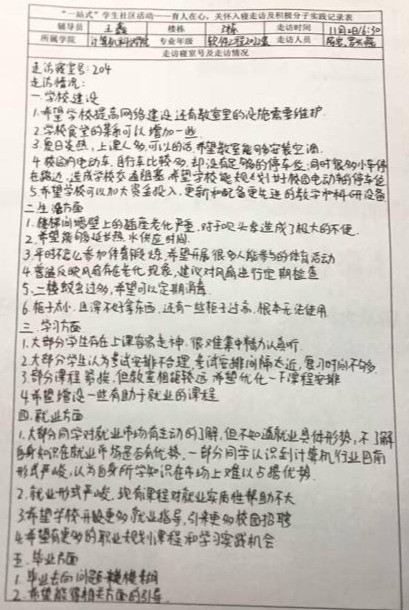 "一站式"学生社区活动——育人在心,关怀入寝走访及积极分子实践记录表
辅导员 王磊 楼栋 走访时间 11月2日16:30
所属学院 计算机科学学院 专业年级 软件工程2022级 走访人员
走访寝室号及走访情况
走访寝室号:204
走访情况:
一.学校建设
1.希望学校提高网络建设 还有教室里的设施需要维护.
2.学校食堂的菜系可以增加一些.
3.夏日炎热,上课人多,可以的话,希望教室能够安装空调.
4.校园内电动车、自行车比较多,却没有足够的停车位;同时很多小车停
在路边,造成学校交通阻塞.希望学校能规划好校园电动车的停车位
5.希望学校可以加大资金投入,更新和配备更先进的教学和科研设备
二.生活方面
1.楼梯间墙壁上的插座老化严重,对于吹头等造成了极大的不便.
2.希望能够延长热水供应时间.
3.平时不怎么参加体育锻炼,希望开展很多人能参与的体育活动
4.普遍反映风扇存在老化现象,建议对风扇进行定期检查
5.二楼蚊虫过多,希望可以定期消毒.
6.柜子太小,且深不好拿东西,还有一些柜子过高,根本无法使用
三.学习方面
1.大部分学生存在上课容易走神,很难集中精力认真听.
2.大部分学生认为考试安排不合理,考试安排间隔太近,复习时间不够多.
3.部分课程紧挨,但教室相距较远 希望优化一下课程安排
4.希望增设一些有助于就业的课程
四.就业方面
1.大部分同学对就业市场有主动的了解,但不知道就业具体形势,不了解
自身知识在就业市场是否有优势.一部分同学认识到计算机行业目前
形式严峻,认为自身所学知识在市场上难以占据优势.
2.就业形式严峻,现有课程对就业实质性帮助不大
3.希望学校开展更多就业指导,引来更多校园招聘
4.希望有更多的职业规划课程和学习实践机会
五.毕业方面
1.毕业去向问题模糊
2.希望能得相关方面的引导.